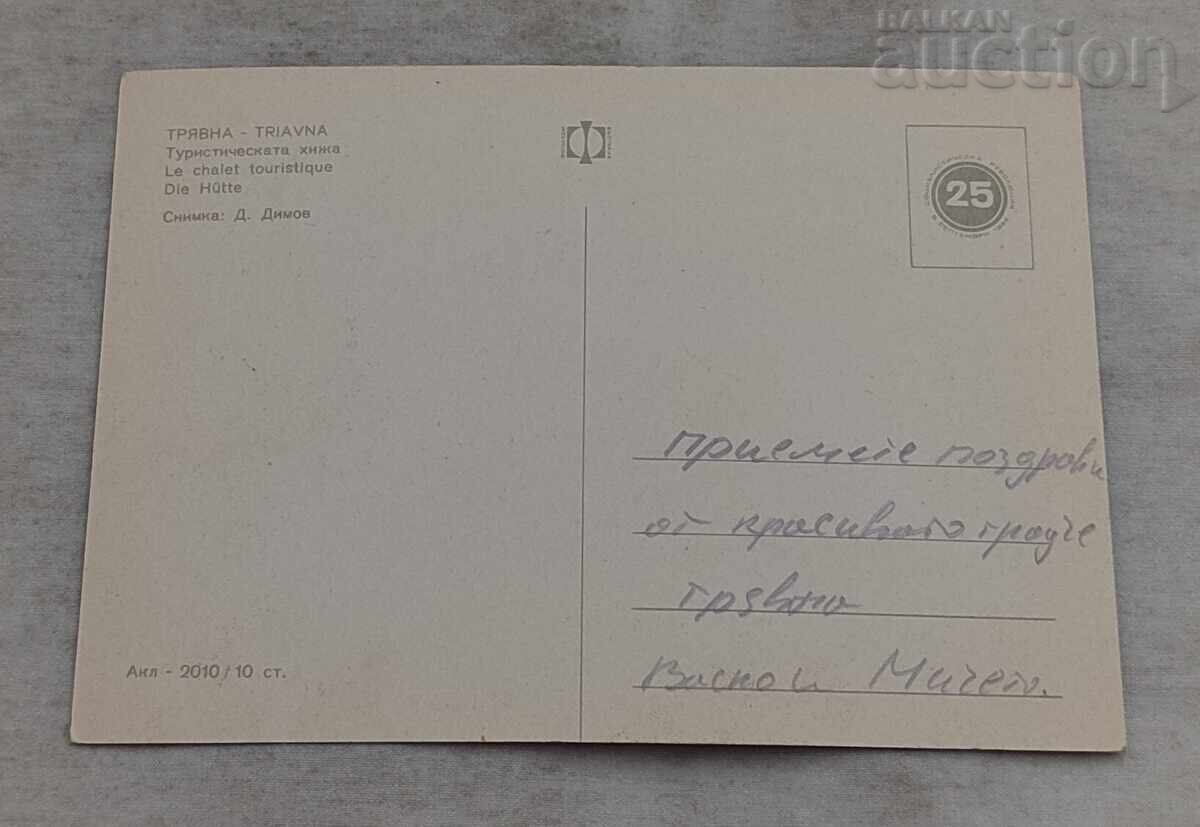 BALKAN
auction
ТРЯВНА - TRIAVNA
Туристическата хижа
Le chalet touristique
Die Hütte
Снимка: Д. Димов
25
приемете поздрави
от красивото градче
трявна
Васко и Мичето.
Акл - 2010/10 ст.